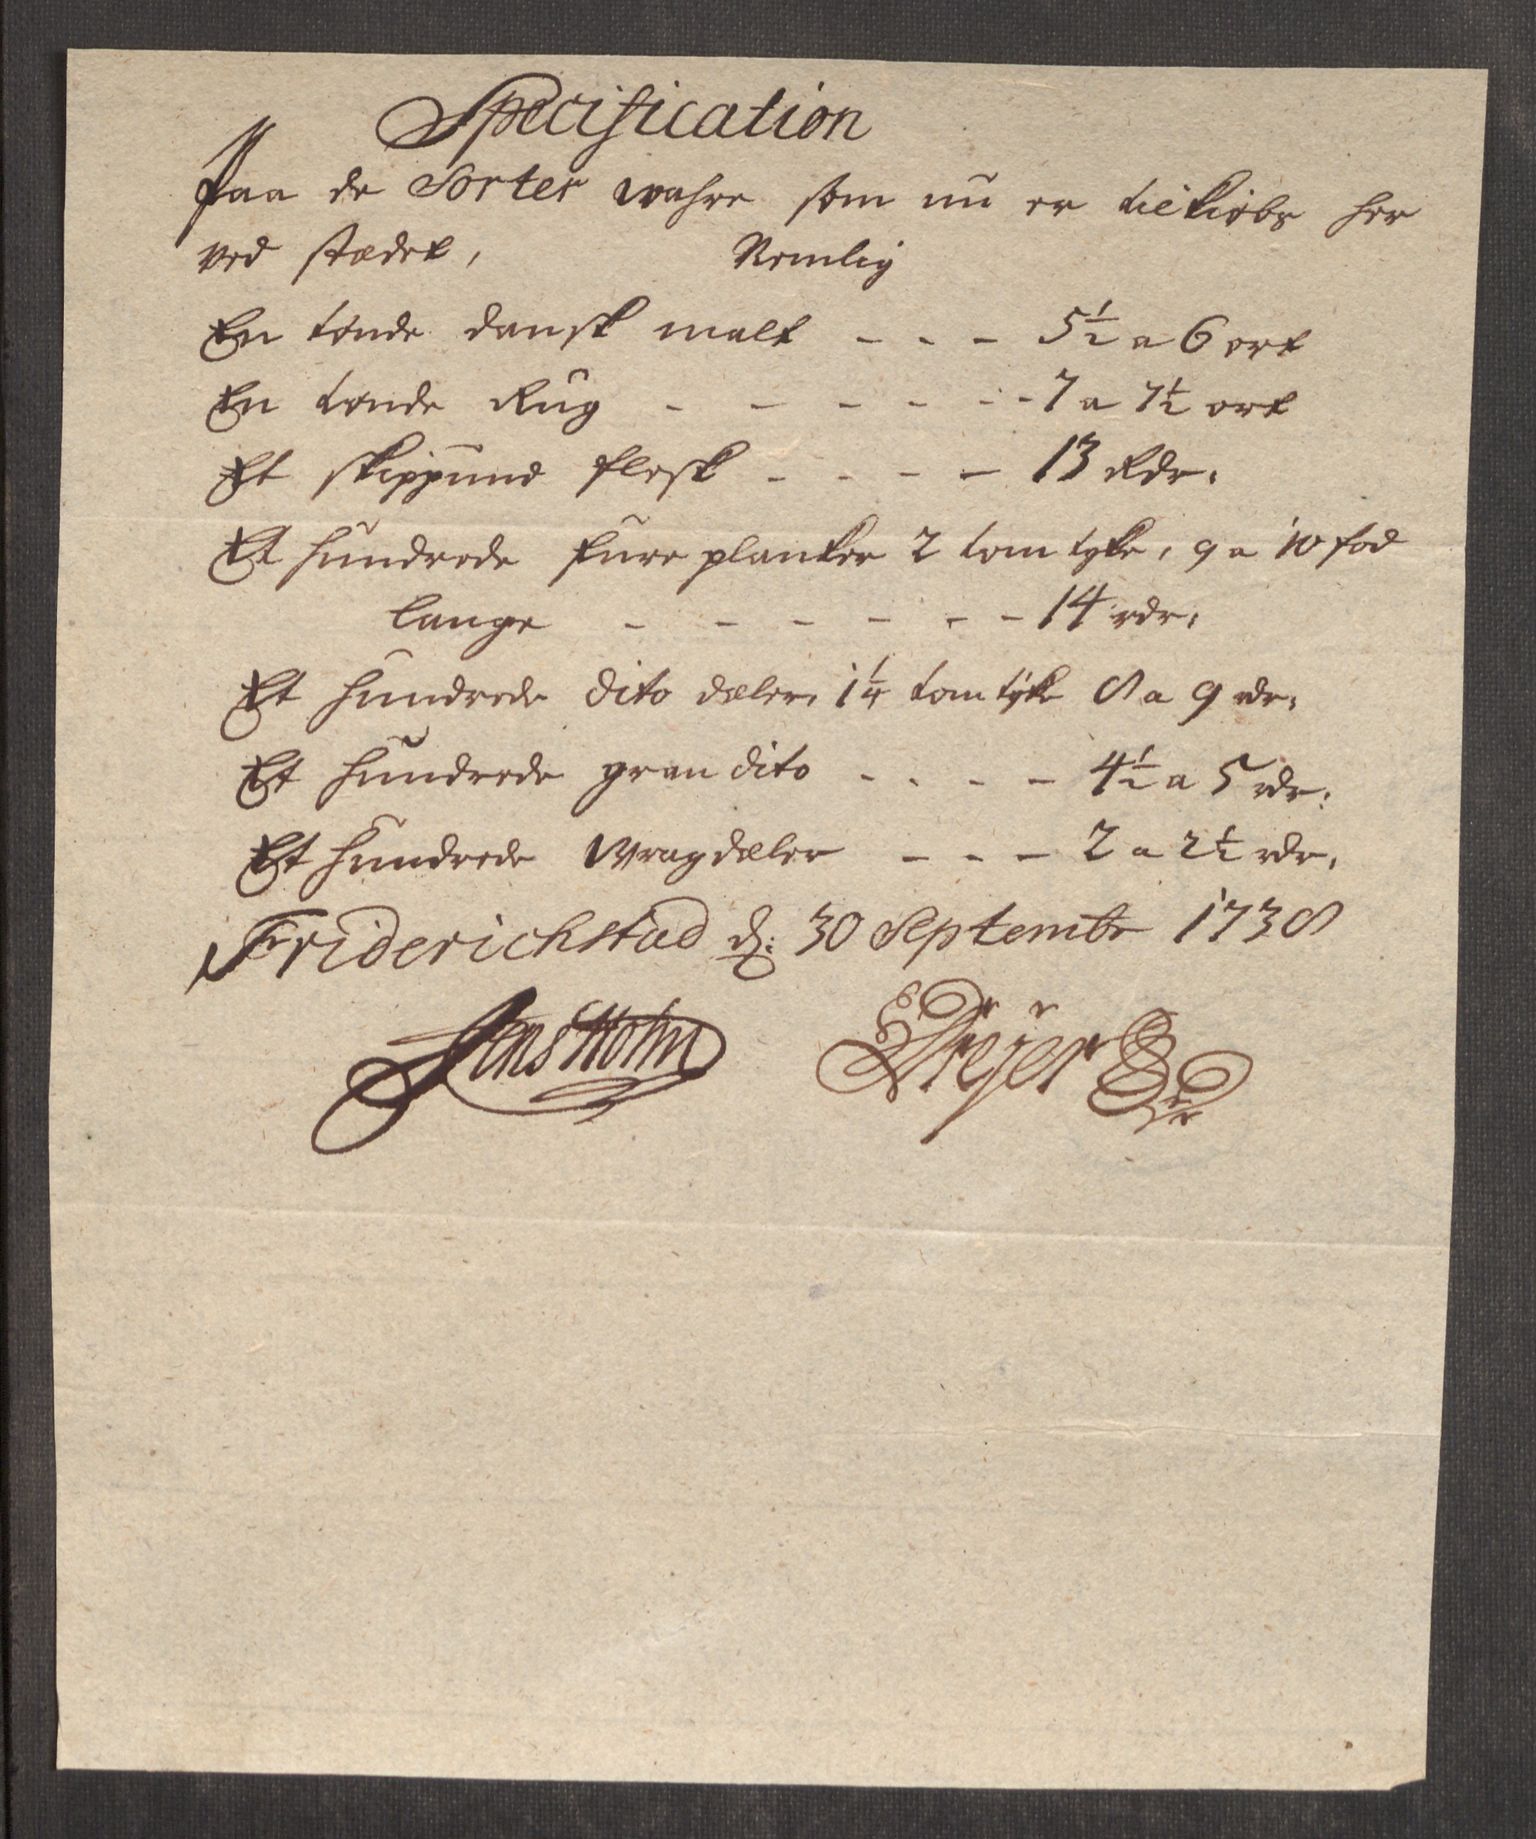 Specification
Paa de Sorter wahre som nu er tilkiøbs her
ved stædet, Nemlig
En tønde dansk malt - - - 5½ a 6 ort
En tønde Rug - - - - - - 7 a 7½ ort
Et skippund flesk - - - - 13 Rdr:
Et hundrede fure planker 2 tom tyke, 9 a 10 fod
lange - - - - - - 14 rdr:
Et hundrede dito dæler 1¼ tom tyke 8 a 9 rdr:
Et hundrede gran dito - - - - 4½ a 5 rdr:
Et hundrede Wragdæler - - - 2 a 2½ rdr:
Friderichstad d: 30 Septembr 1738
Jens Holm Dreÿer